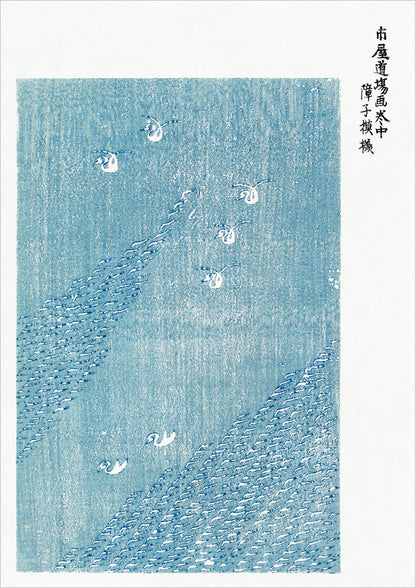 市屋道場画巻中
障子模様